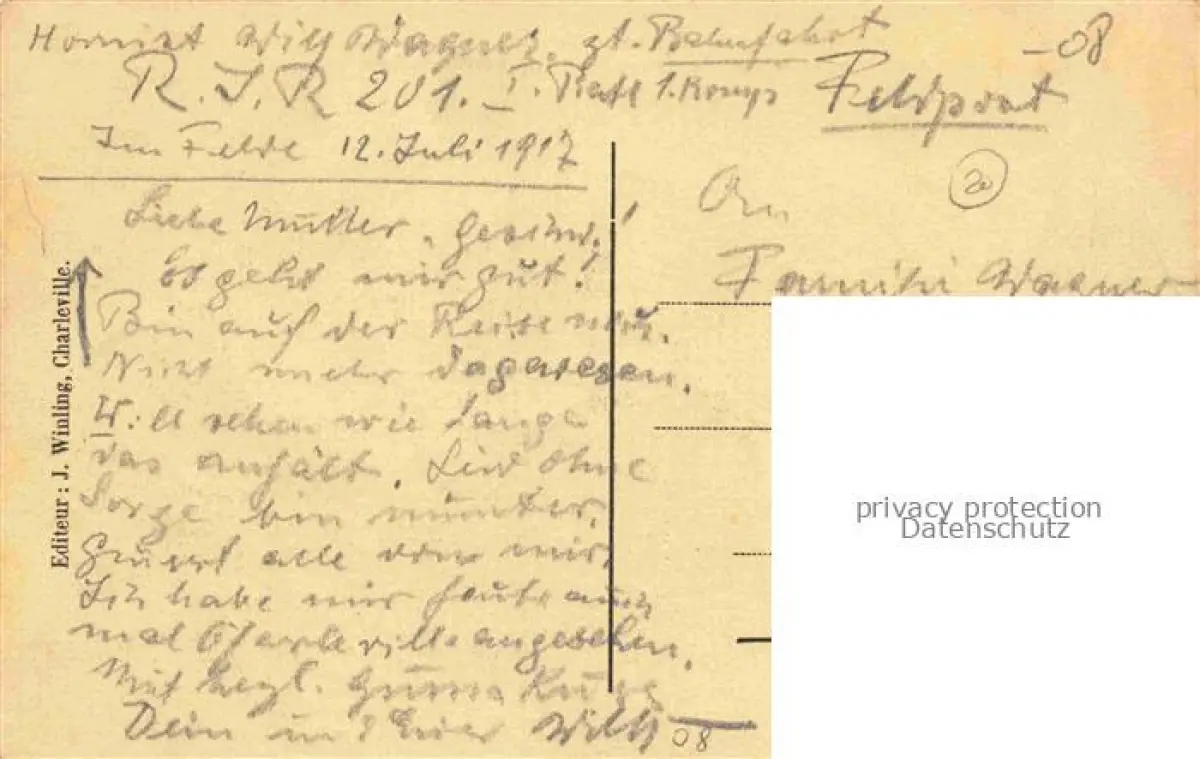 Hornist Willy Wagner, zt. Bahnfahrt
R. I. R 201. I. Batl 1. Komp
Feldpost
Im Felde 12. Juli 1917
Liebe Mutter, Geschw.!
Es geht mir gut!
Bin auf der Reise
Nicht mehr dagewesen.
Will sehen wie lange
das anhält. Seid ohne
Sorge bin munter.
Grüsst alle von mir.
Ich habe mir heute auch
mal Charleville angesehen.
Mit herzl. Gruss u. Kuss
Dein u. Euer Willy
-08
20
An
Familie Wagner
08
Editeur: J. Winling, Charleville.
privacy protection
Datenschutz